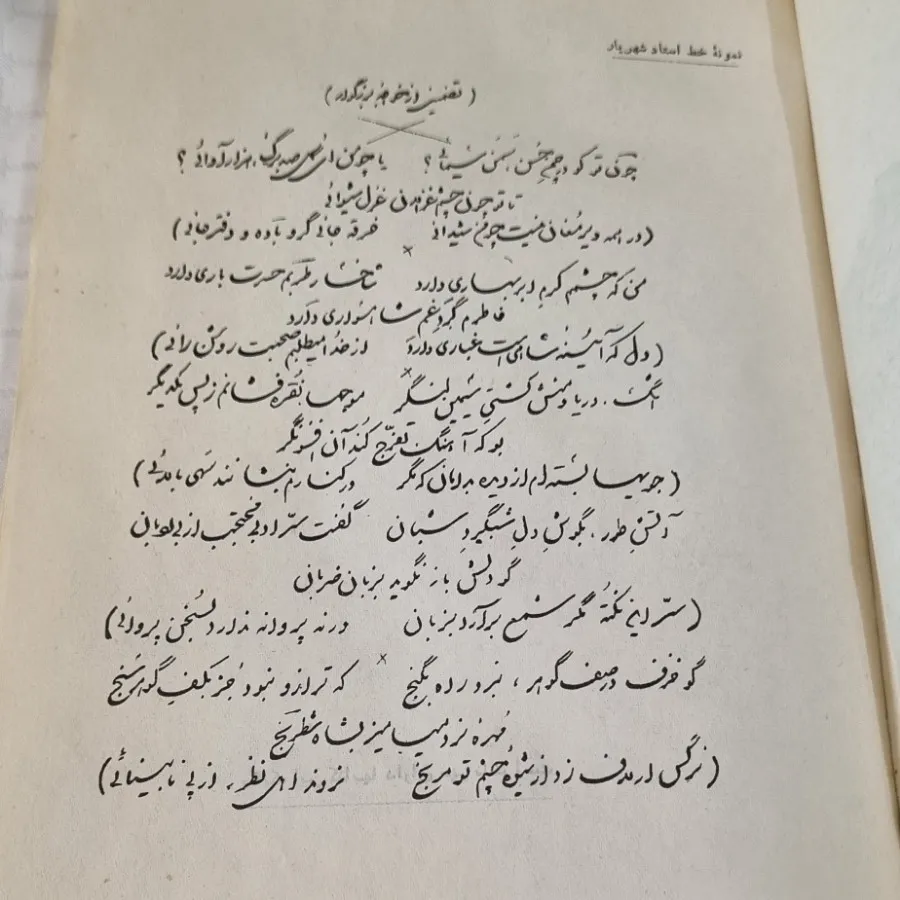 نمونهٔ خط استاد شهریار
(تضمینی از خواجه بزرگوار)
چون تو کو در چمن حسن، سمن سیمائی؟ یا چو من ای گل صد برگ، هزارآوائی؟
تا تو چونی چشم غزل شیوائی
(در همه دیر مغان نیست چو من شیدائی خرقه جائی گرو باده و دفتر جائی)
من که چشم کرم ابر بهاری دارد شاخسار طربم حسرت باری دارد
خاطرم گرد غم شاهسواری دارد
(دل که آئینه شاهی است غباری دارد از خدا میطلبم صحبت روشن رائی)
اشک، دریا و منش کشتی سیمین لنگر موجها نقره فشانم ز پس یکدیگر
بو که آهنگ تفرّج کند آن افسونگر
(جویها بسته‌ام از دیده بدامان که مگر در کنارم بنشانند سهی بالائی)
آتش طور، بگوش دل شبگیر و شبان گفت سرّ ادبی محتجب از بی ادبان
گو دلش باز نگوید بزبان ضربان
(سرّ این نکته مگر شمع برآرد بزبان ورنه پروانه ندارد بسخن پروائی)
گو خزف در صف گوهر، نبرد راه بگنج که ترازو نبود جز بکف گوهرسنج
مهره نرد میامیز بشاه شطرنج
(نرگس ار لاف زد از شیوه چشم تو مرنج نروند اهل نظر، از پی نابینائی)